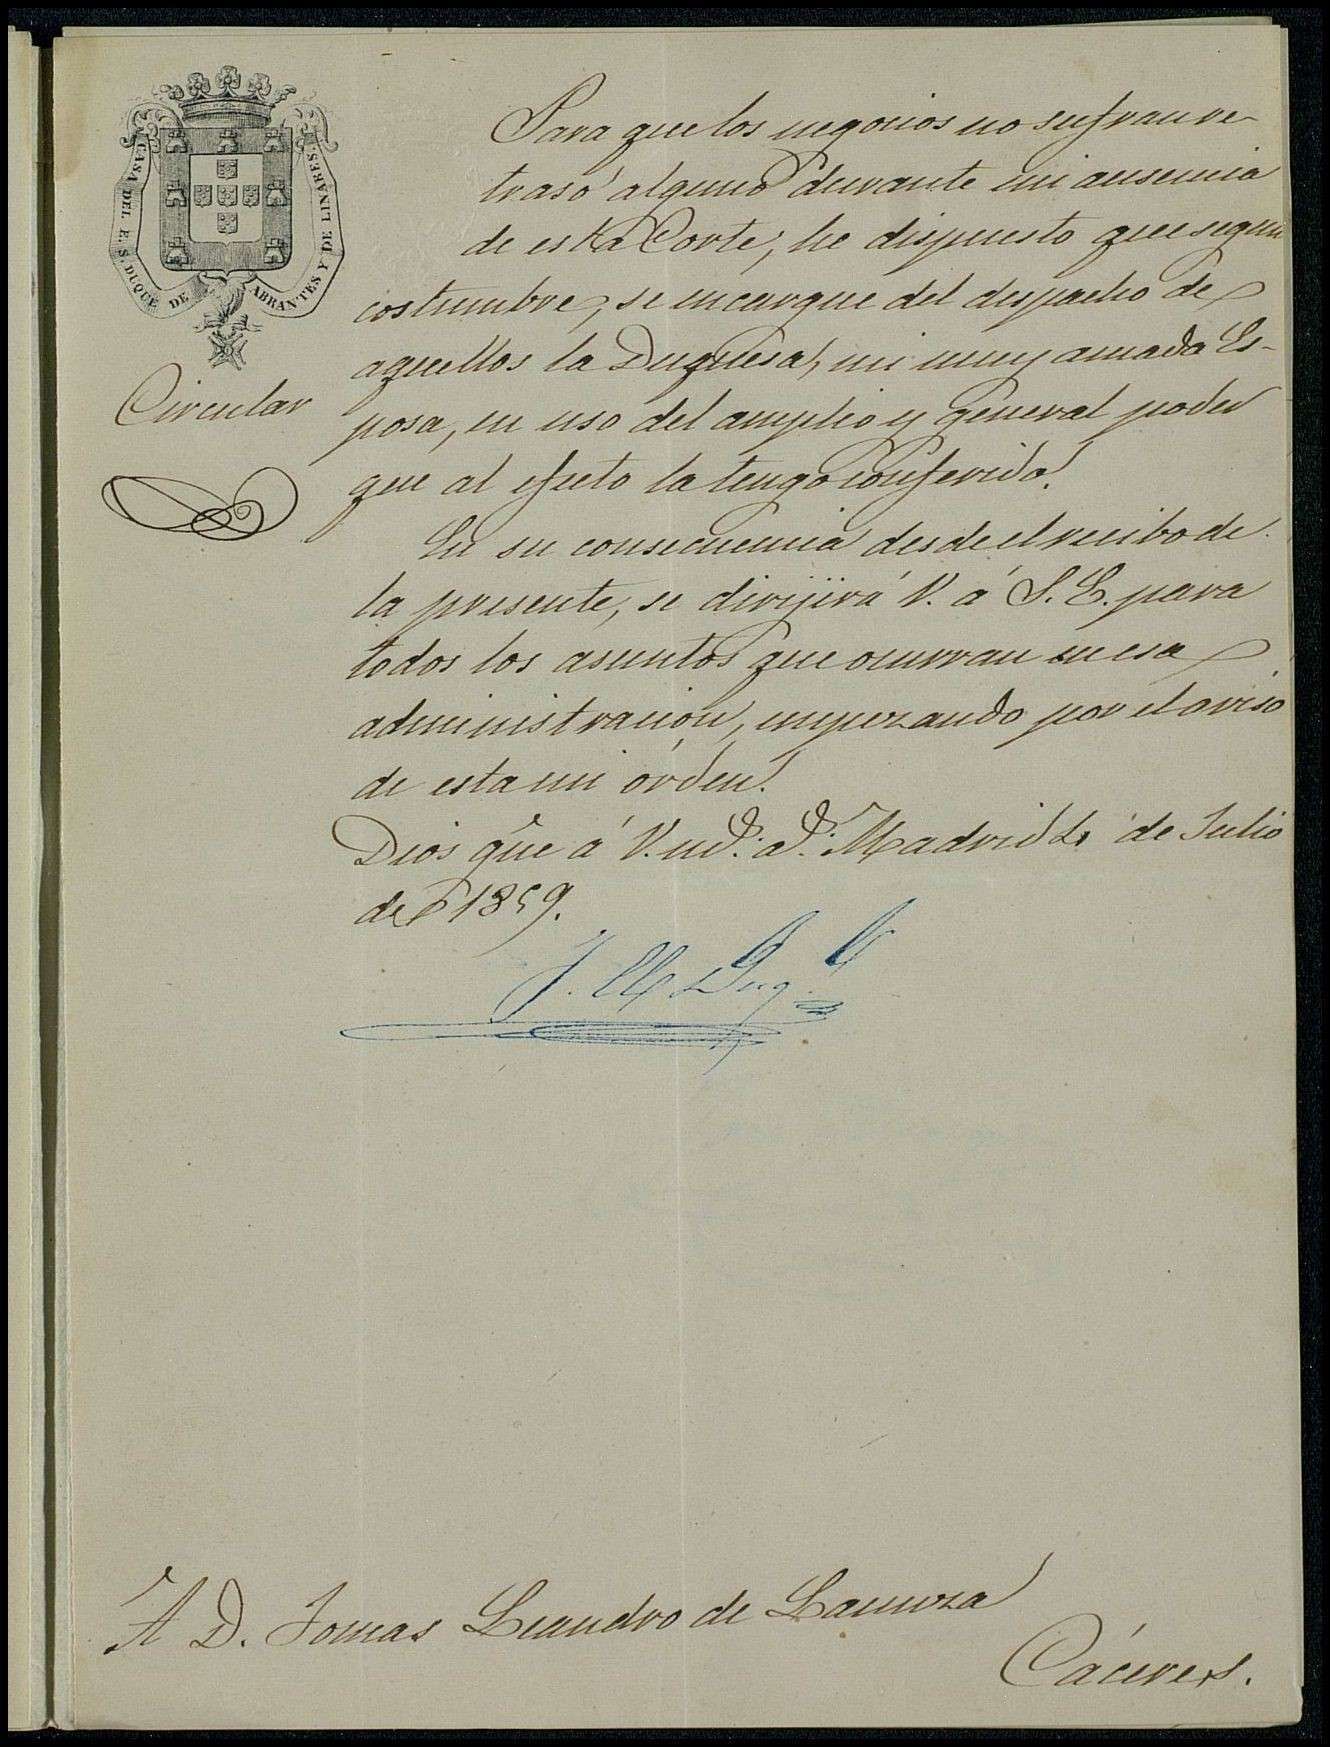 CASA DEL E. S. DUQUE DE ABRANTES Y DE LINARES.
Circular
Para que los negocios no sufran re-
traso alguno durante mi ausencia
de esta Corte, he dispuesto que segun
costumbre, se encargue del despacho de
aquellos la Duquesa, mi muy amada Es-
posa, en uso del amplio y general poder
que al efecto la tengo conferido.
En su consecuencia desde el recibo de
la presente, se dirijirá V. á S. E. para
todos los asuntos que ocurran en esa
administracion, empezando por el aviso
de esta mi órden.
Dios gue á V. md. ad. Madrid de Julio
de 1859.
El Duq.
A D. Tomas Leandro de Lanuza
Cáceres.